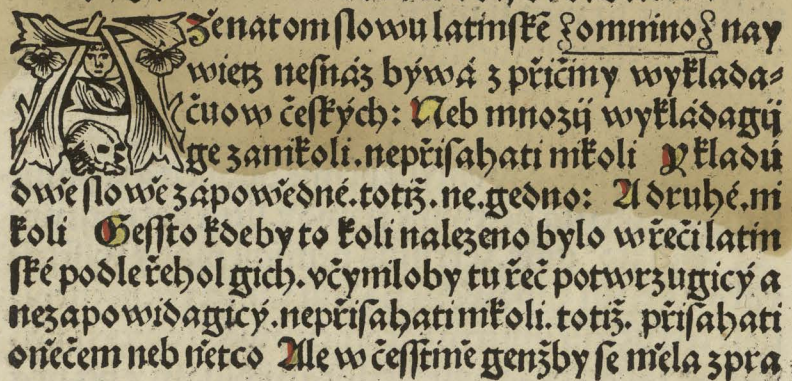 A Zenatom slowu latinskē §omnino§ nay
wietz nesnáz býwá z přičiny wykłada⸗
čuow českých: Neb mnozij wykládagij
ge za nikoli.nepřisahati nikoli Y kladú
dwě slowě zápowědné.totiž.ne.gedno: A druhé.ni
koli Gessto kdeby to koli nalezeno bylo w řeči latin
ské podle řehol gich.včynilo by tu řeč potwrzugicý a
nezapowidagicý.nepřisahati nikoli.totiž.přisahati
oněčem neb nětco Ale w čessтině genžby se měla zpra